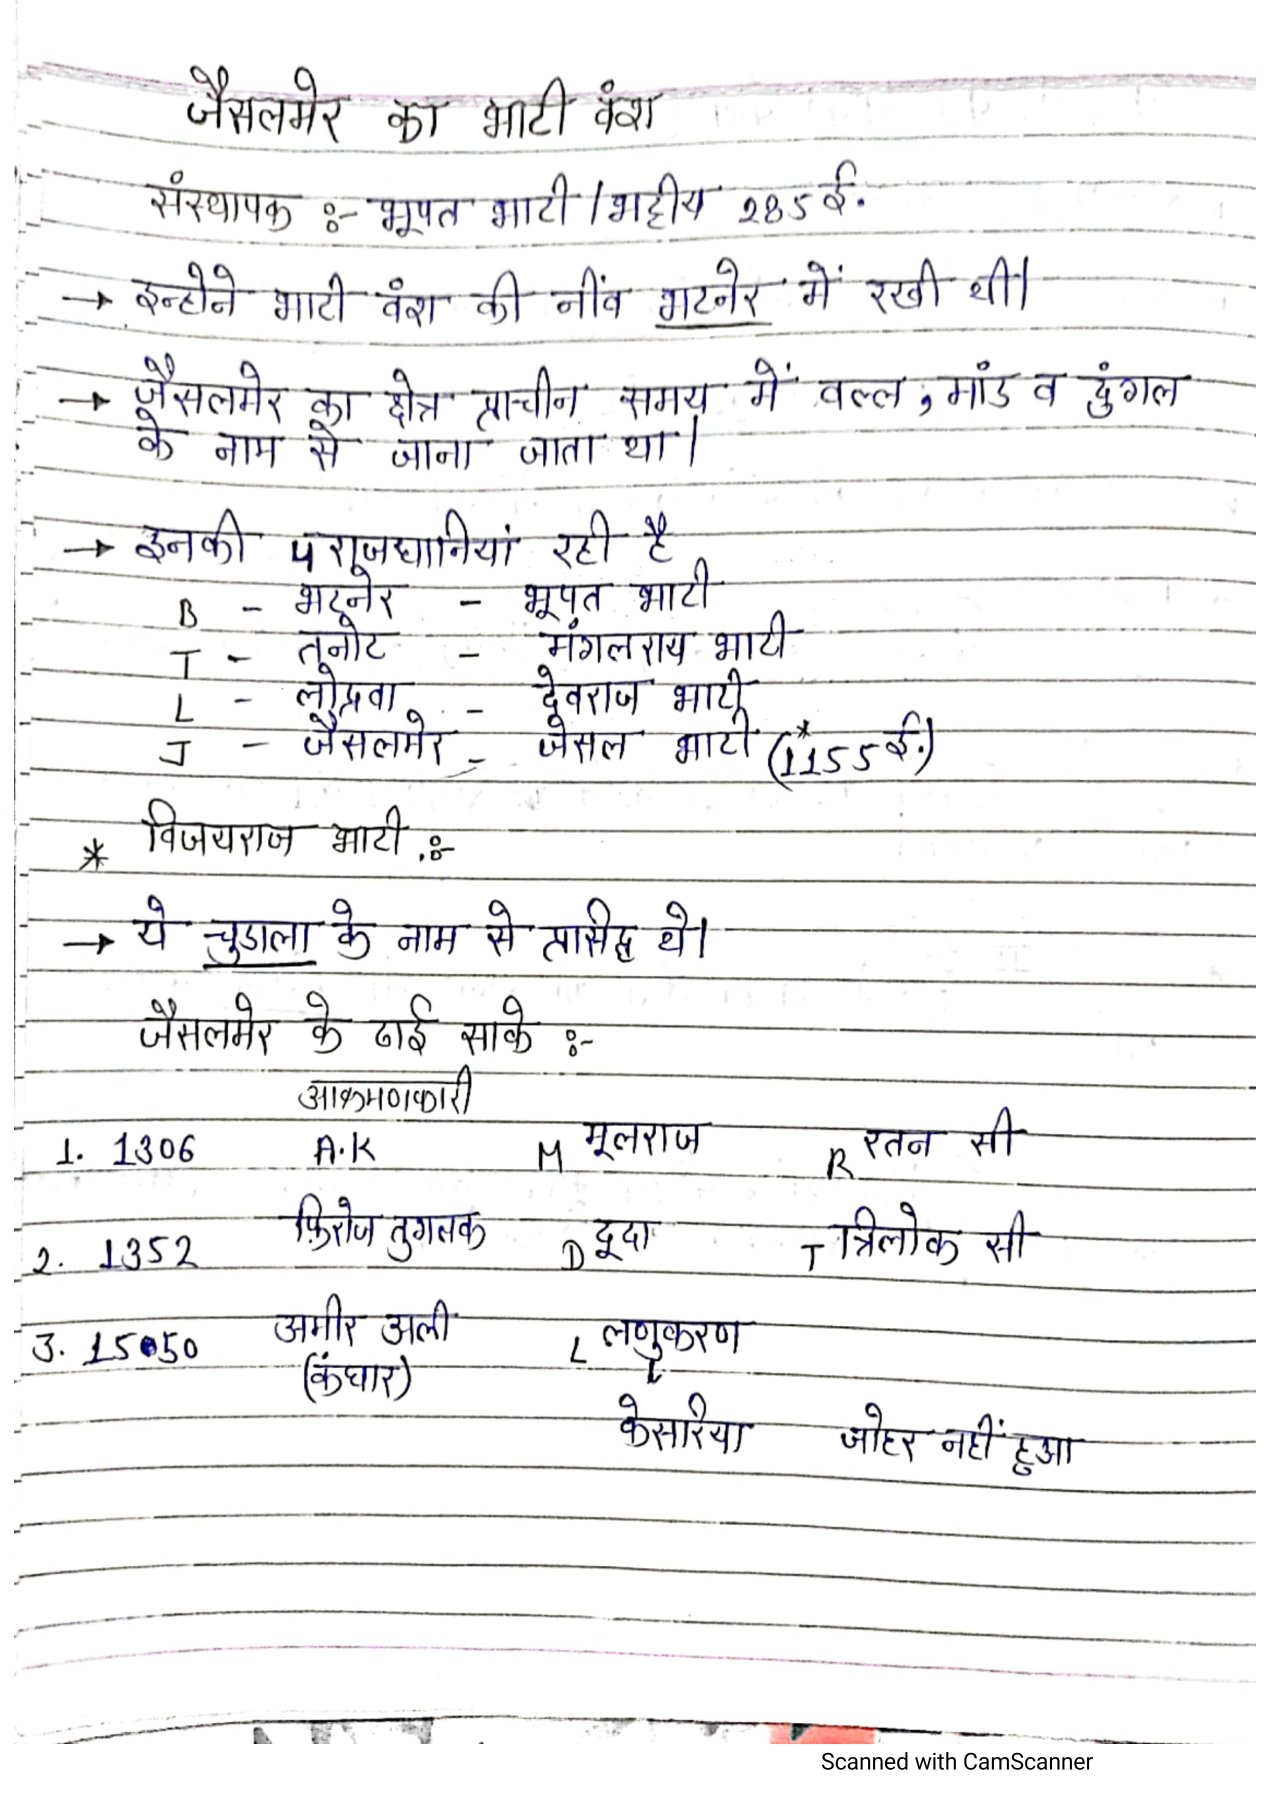 जैसलमेर का भाटी वंश
संस्थापक :- भूपत भाटी / भट्टीय 285 ई.
→ इन्होने भाटी वंश की नींव भटनेर में रखी थी।
→ जैसलमेर का क्षेत्र प्राचीन समय में वल्ल, मांड व दुंगल
के नाम से जाना जाता था।
→ इनकी 4 राजधानियां रही है
B - भटनेर - भूपत भाटी
T - तनोट - मंगलराय भाटी
L - लोद्रवा - देवराज भाटी
J - जैसलमेर - जेसल भाटी (1155 ई.)
* विजयराज भाटी :-
→ ये चुडाला के नाम से प्रसिद्ध थे।
जैसलमेर के ढाई साके :-
आक्रमणकारी
1. 1306 A.K M मूलराज R रतन सी
2. 1352 फ़िरोज तुगलक D दूदा T त्रिलोक सी
3. 1550 अमीर अली L लणुकरण
(कंधार) ↓
केसरिया जोहर नहीं हुआ
Scanned with CamScanner